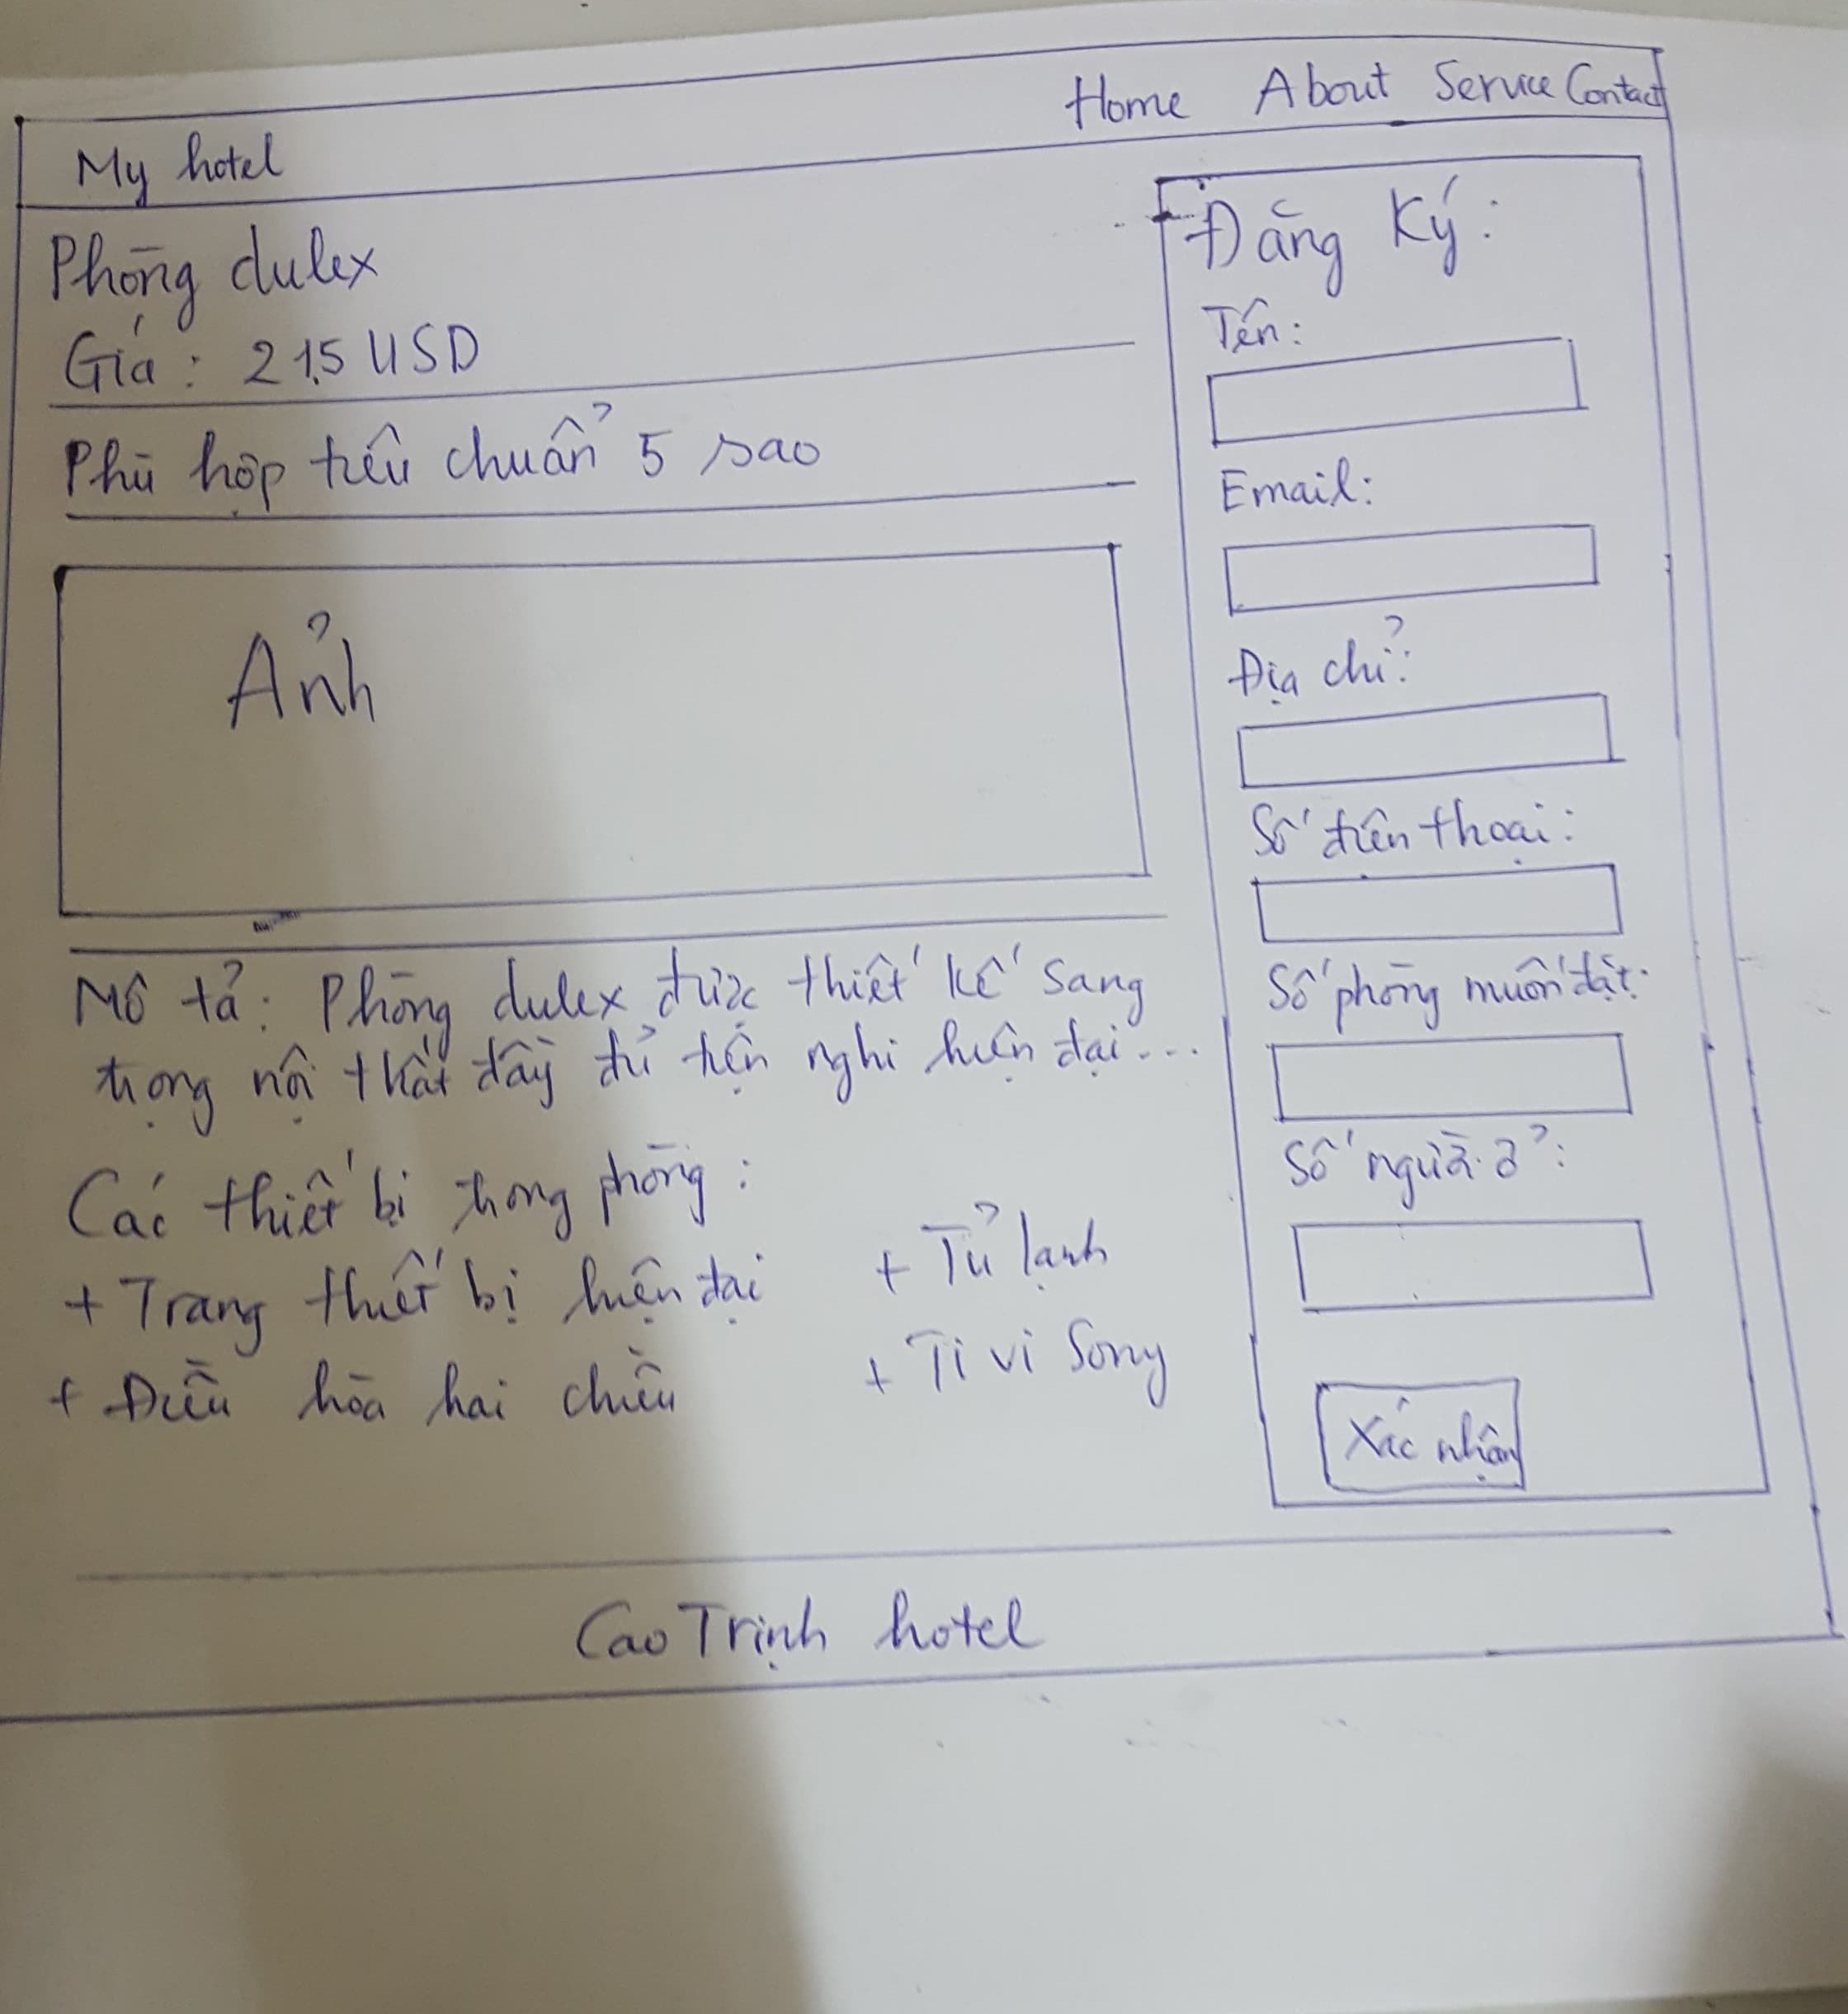 My hotel
Home About Service Contact
Phòng dulex
Giá : 21,5 USD
Phù hợp tiêu chuẩn 5 sao
Ảnh
Mô tả : Phòng dulex được thiết kế sang
trọng nội thất đầy đủ tiện nghi hiện đại...
Các thiết bị trong phòng :
+ Trang thiết bị hiện đại
+ Tủ lạnh
+ Điều hòa hai chiều
+ Ti vi Sony
Đăng Ký :
Tên:
Email:
Địa chỉ:
Số điện thoại :
Số phòng muốn đặt:
Số người ở :
Xác nhận
Cao Trịnh hotel